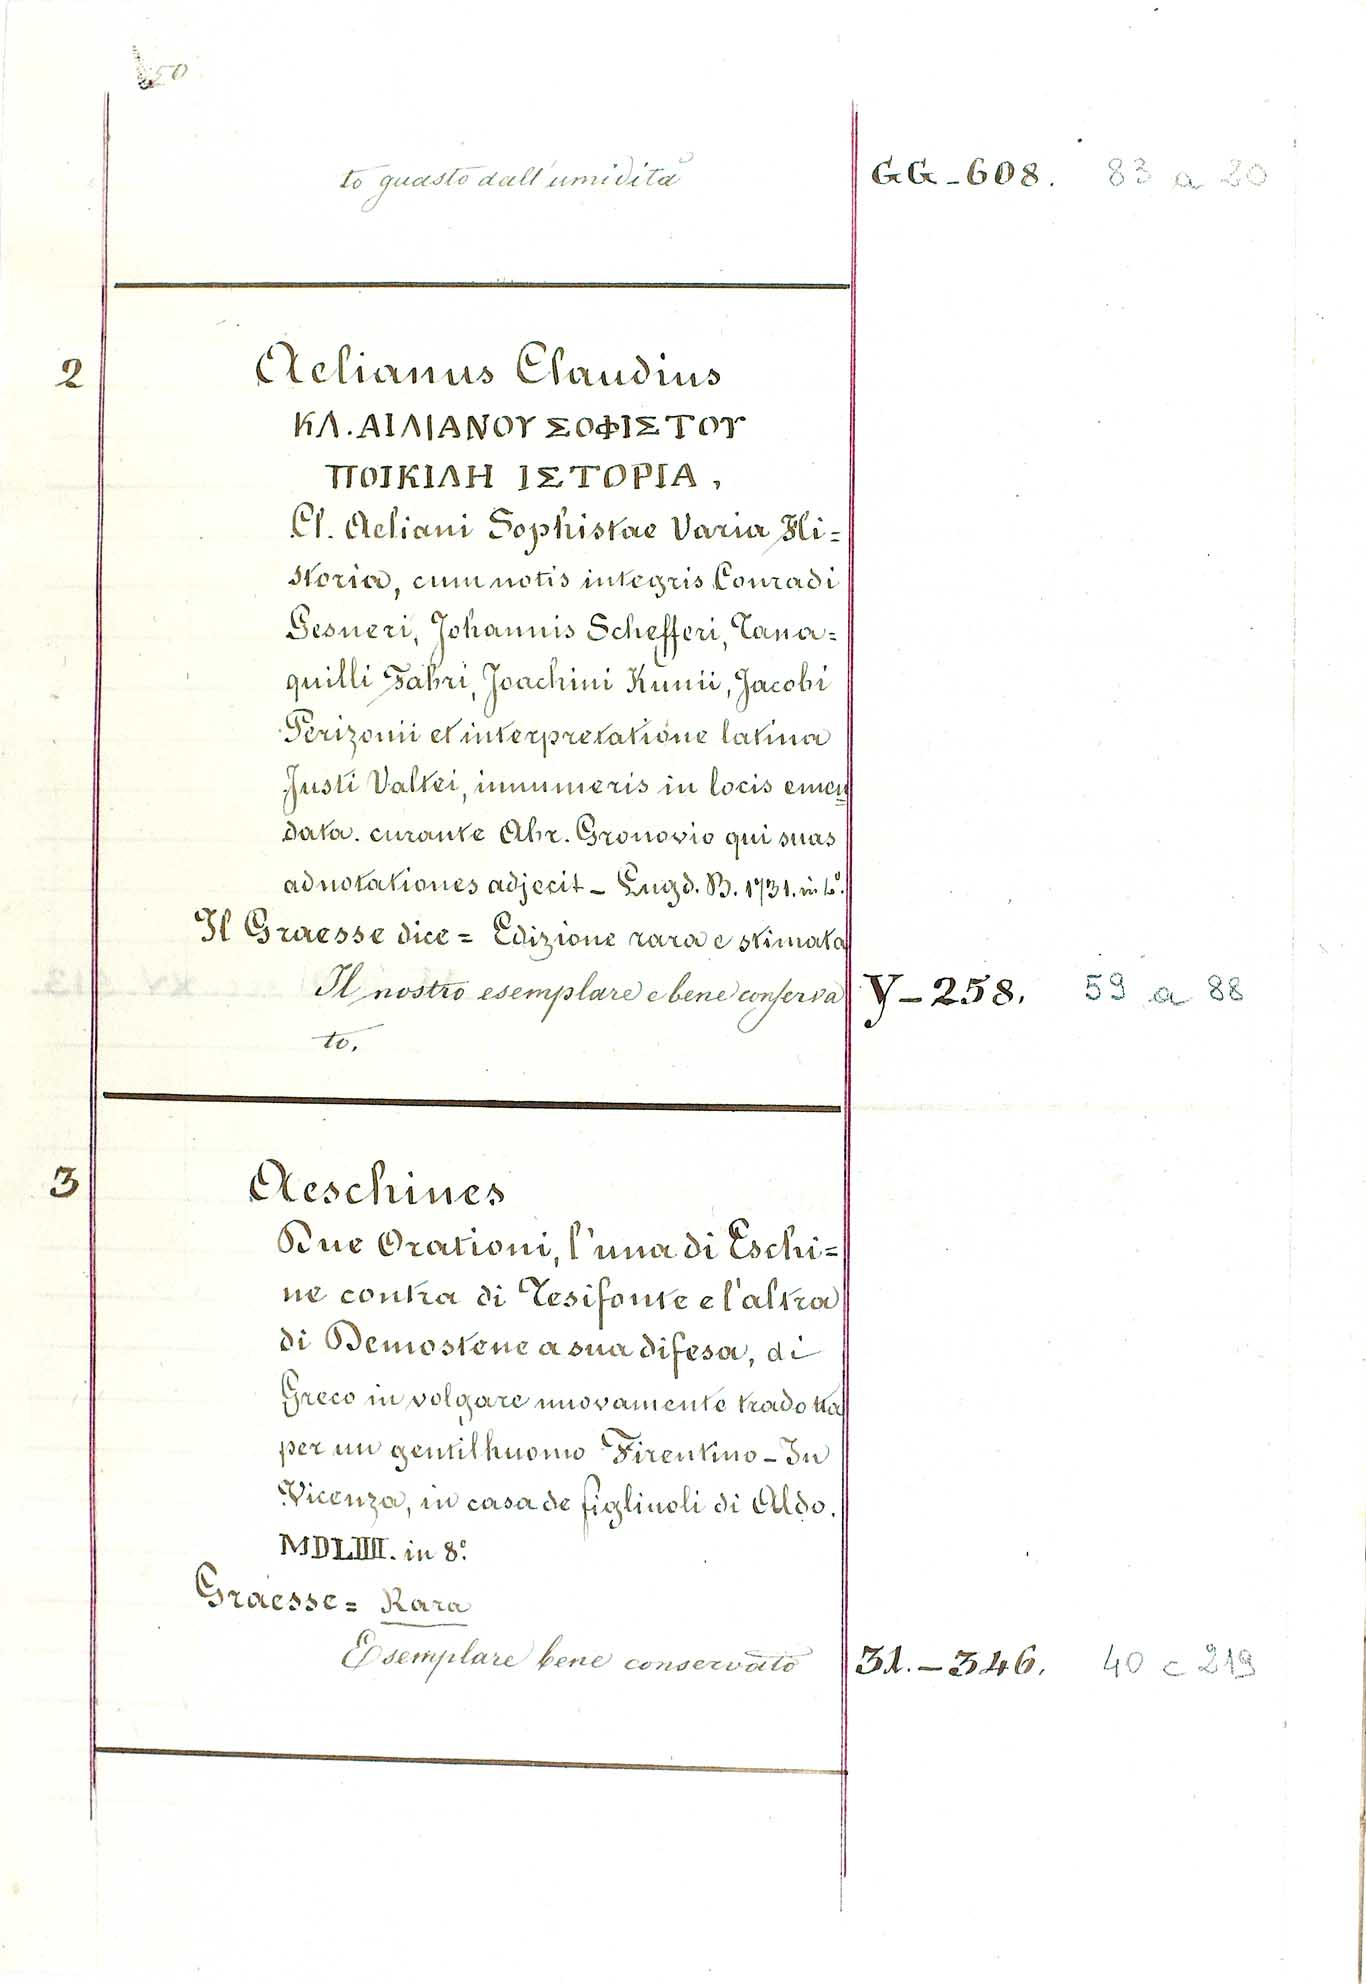 50
to guasto dall'umidità GG-608. 83 a 20
2 Aelianus Claudius
ΚΛ. ΑΙΛΙΑΝΟΥ ΣΟΦΙΣΤΟΥ
ΠΟΙΚΙΛΗ ΙΣΤΟΡΙΑ,
Cl. Aeliani Sophistae Varia Hi=
storia, cum notis integris Conradi
Gesneri, Johannis Schefferi, Tana=
quilli Fabri, Joachini Kunii, Jacobi
Perizonii et interpretatione latina
Justi Valtei, innumeris in locis emen
data. curante Abr. Gronovio qui suas
adnotationes adjecit - Lugd. B. 1731. in 4°.
Il Graesse dice = Edizione rara e stimata
Il nostro esemplare e bene conserva Y-258. 59 a 88
to.
3 Aeschines
Due Orationi, l'una di Eschi=
ne contra di Tesifonte e l'altra
di Demostene a sua difesa, di
Greco in volgare nuovamente tradotta
per un gentilhuomo Firentino - In
Vicenza, in casa de figliuoli di Aldo.
MDLIIII. in 8°.
Graesse = Rara
Esemplare bene conservato 31.-346. 40 c 219